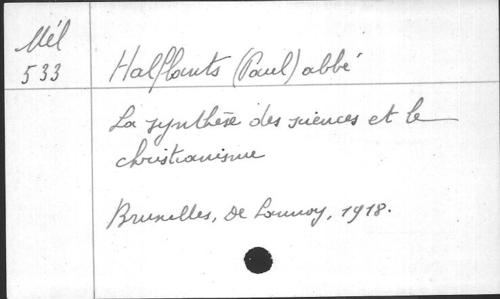 Mél
533
Halflants (Paul) abbé
La synthèse des sciences et le
christianisme
Bruxelles, De Lannoy, 1918.